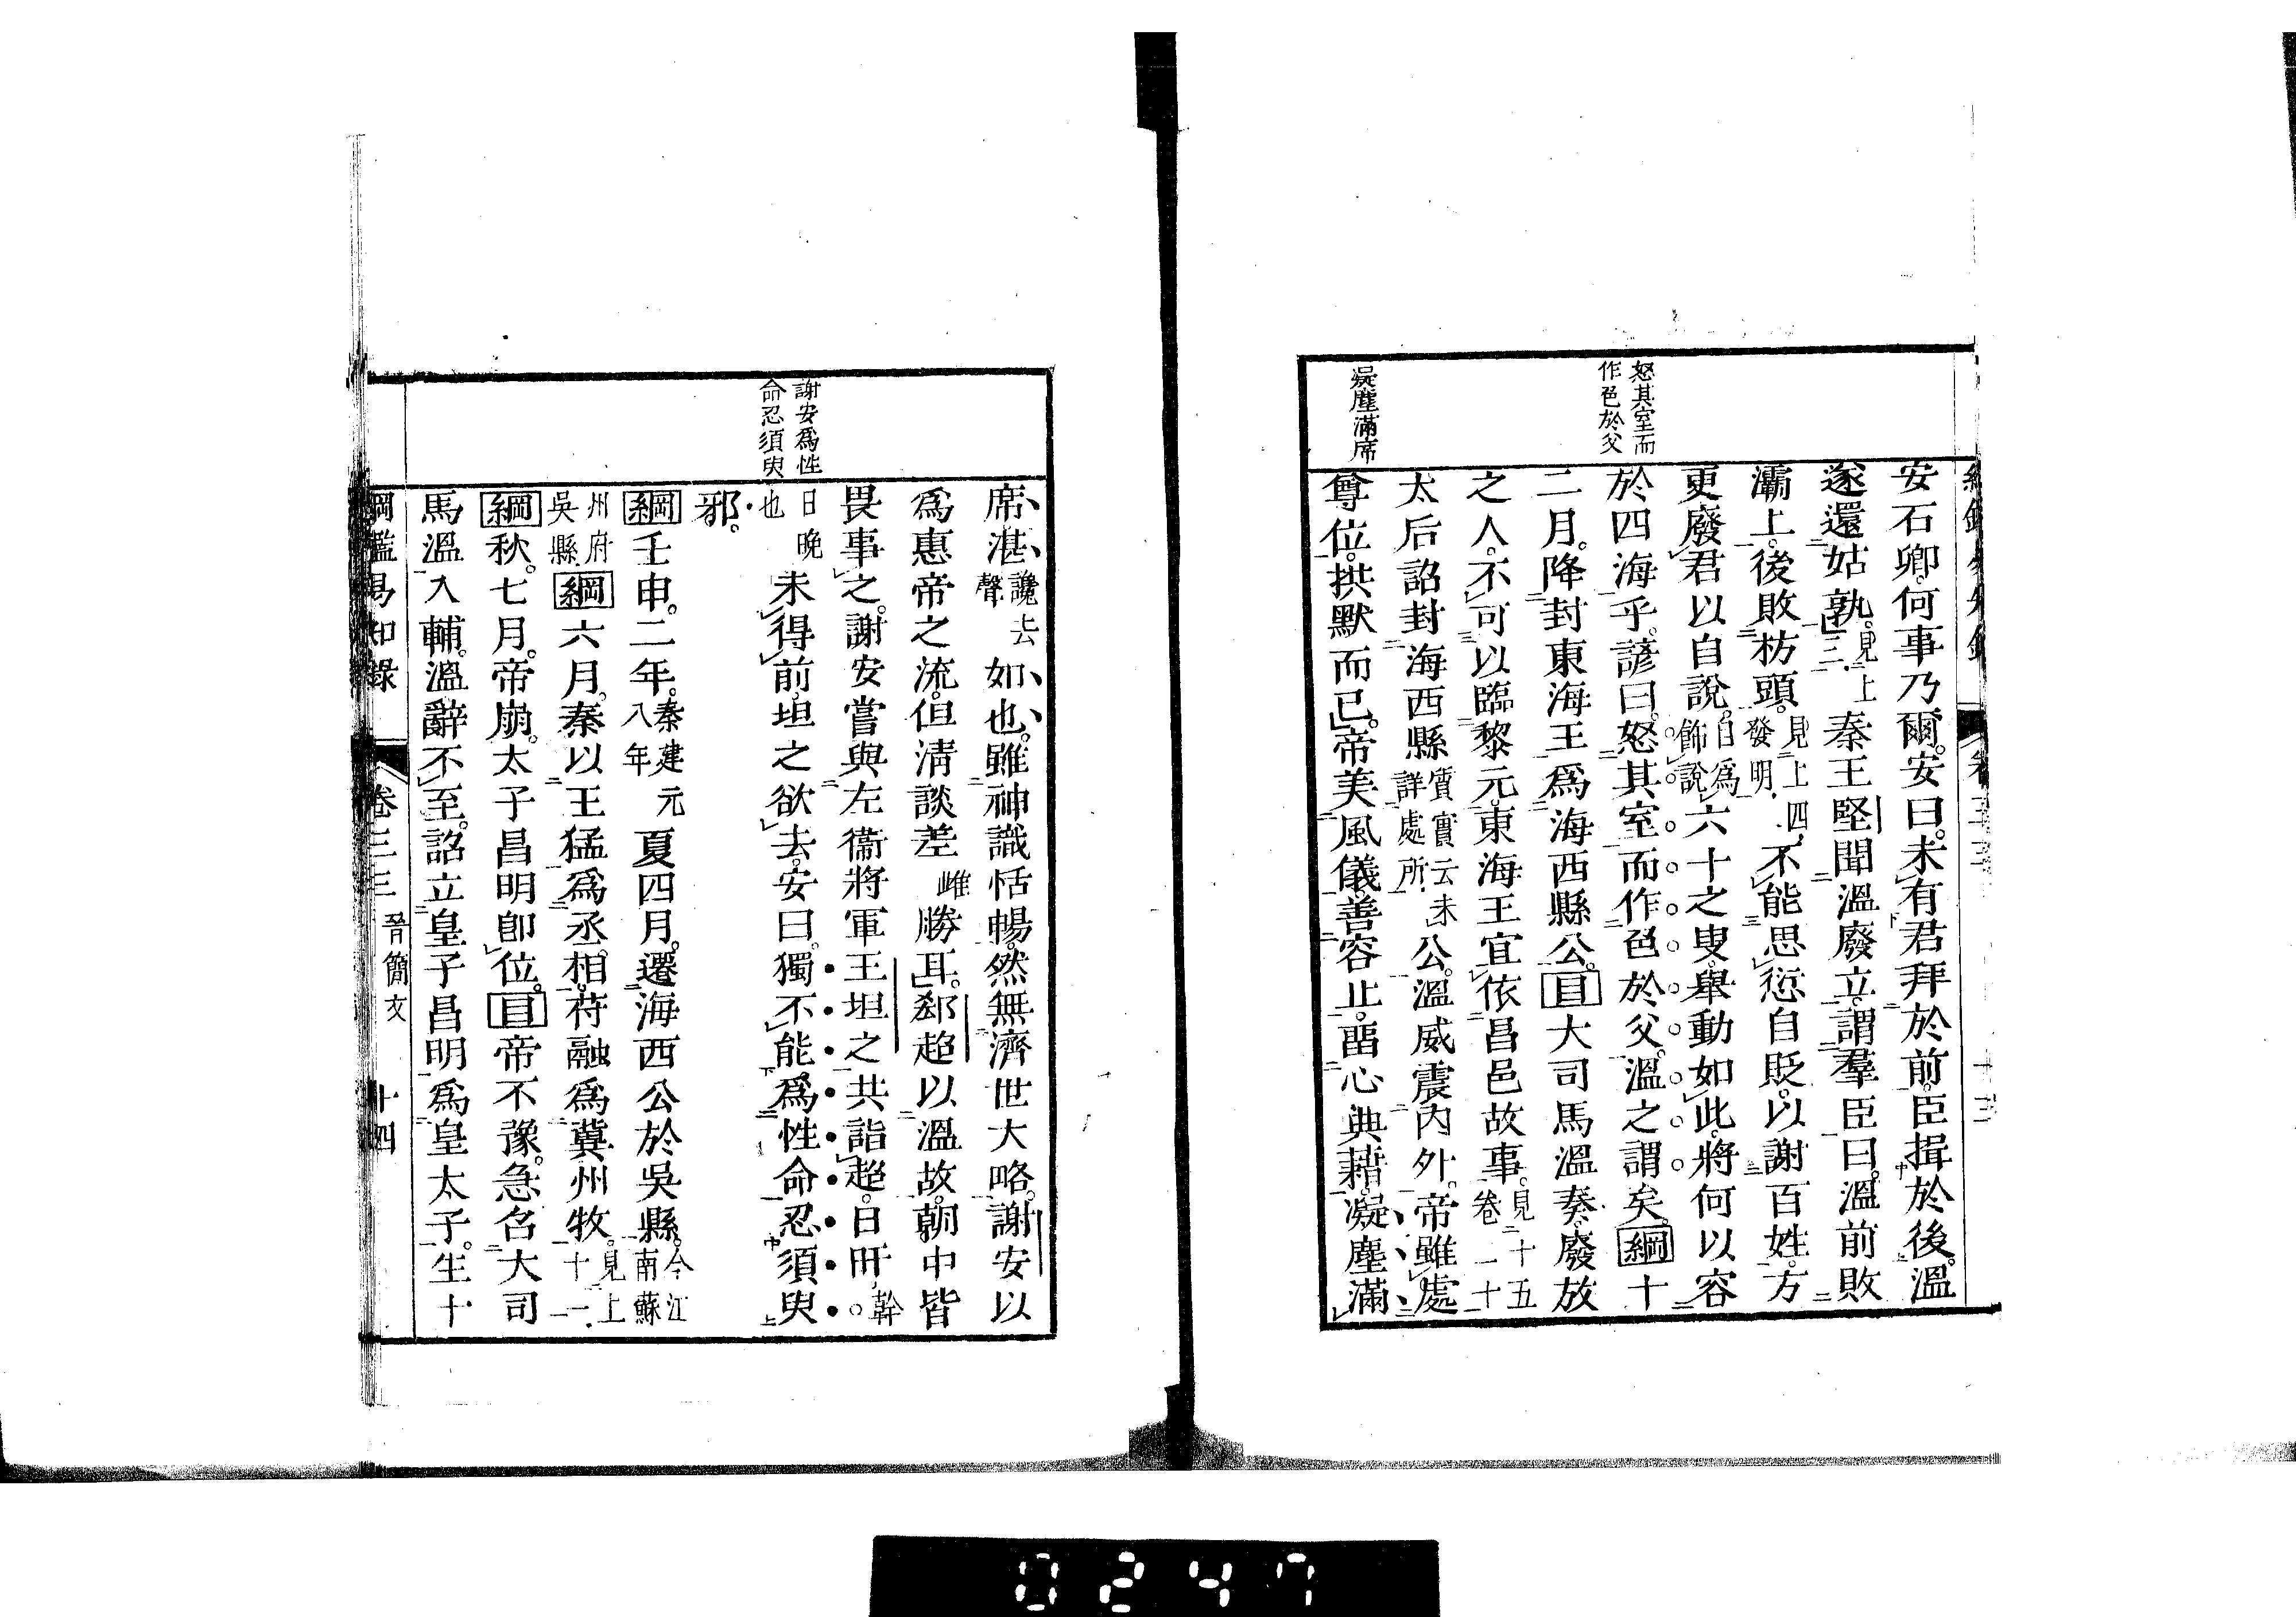 怒其室而
作色於父
凝塵滿席
安石卿何事乃爾。安曰。未有君拜於前。臣揖於後。溫
遂還姑孰。見上三 秦王堅聞溫廢立。謂羣臣曰。溫前敗
灞上。後敗枋頭。見上四發明 不能思愆自貶。以謝百姓。方
更廢君以自說。自爲飾說 六十之叟。舉動如此。將何以容
於四海乎。諺曰。怒其室而作色於父。溫之謂矣。綱十
二月。降封東海王爲海西縣公。目大司馬溫奏。廢放
之人。不可以臨黎元。東海王宜依昌邑故事。見十五卷一十
太后詔封海西縣質實云未詳處所公。溫威震內外。帝雖處
尊位。拱默而已。帝美風儀。善容止。畱心典籍。凝塵滿
謝安爲性
命忍須臾
席。湛讒去聲如也。雖神識恬暢。然無濟世大略。謝安以
爲惠帝之流。但清談差雌勝耳。郄超以溫故。朝中皆
畏事之。謝安嘗與左衞將軍王坦之共詣超。日旰幹。
日晚也 未得前。坦之欲去。安曰。獨不能爲性命忍須臾
邪。
綱壬申。二年。秦建元八年 夏四月。遷海西公於吳縣。今江南蘇
州府吳縣 綱六月。秦以王猛爲丞相。苻融爲冀州牧。見上十一
綱秋。七月。帝崩。太子昌明卽位。目帝不豫。急召大司
馬溫入輔。溫辭不至。詔立皇子昌明爲皇太子。生十
綱鑑易知錄 卷三三 晉簡文 十四